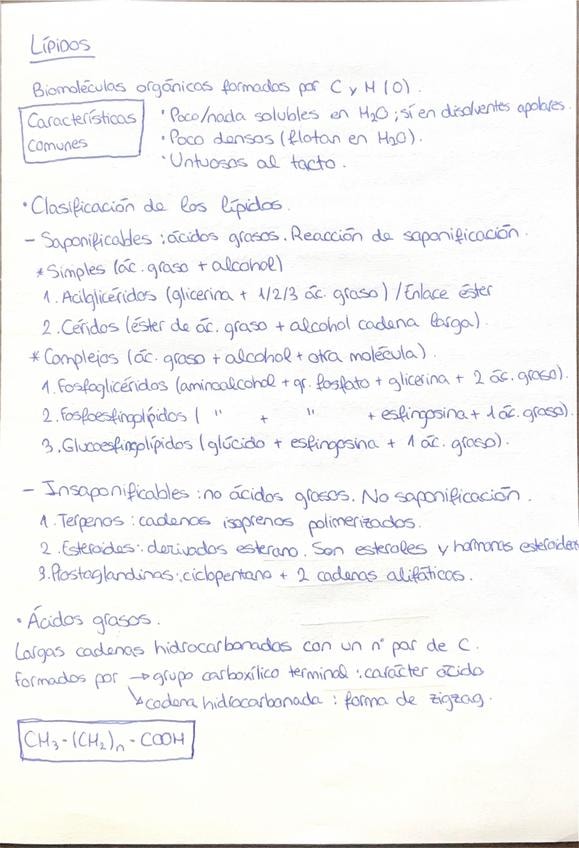 LÍPIDOS
Biomoléculas orgánicas formadas por C y H (O).
Características comunes
· Poco/nada solubles en H₂O; sí en disolventes apolares.
· Poco densos (flotan en H₂O).
· Untuosos al tacto.
· Clasificación de los lípidos.
- Saponificables: ácidos grasos. Reacción de saponificación.
* Simples (ác. graso + alcohol)
1. Acilglicéridos (glicerina + 1/2/3 ác. graso) / Enlace éster
2. Céridos (éster de ác. graso + alcohol cadena larga).
* Complejos (ác. graso + alcohol + otra molécula).
1. Fosfoglicéridos (aminoalcohol + gr. fosfato + glicerina + 2 ác. graso).
2. Fosfoesfingolípidos ( " + " + esfingosina + 1 ác. graso).
3. Glucoesfingolípidos (glúcido + esfingosina + 1 ác. graso).
- Insaponificables: no ácidos grasos. No saponificación.
1. Terpenos: cadenas isoprenos polimerizados.
2. Esteroides: derivados esterano. Son esteroles y hormonas esteroideas
3. Prostaglandinas: ciclopentano + 2 cadenas alifáticas.
· Ácidos grasos.
Largas cadenas hidrocarbonadas con un nº par de C.
Formados por → grupo carboxílico terminal: carácter ácido
↘ cadena hidrocarbonada: forma de zigzag.
CH₃-(CH₂)ₙ-COOH